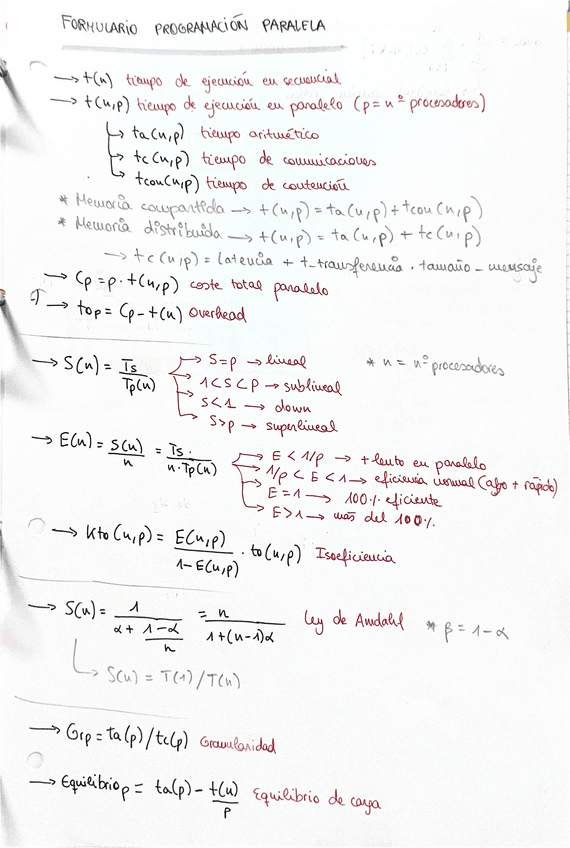 FORMULARIO PROGRAMACIÓN PARALELA
→ t(n) tiempo de ejecución en secuencial
→ t(n,p) tiempo de ejecución en paralelo (p = nº procesadores)
↳ ta(n,p) tiempo aritmético
↳ tc(n,p) tiempo de comunicaciones
↳ tcon(n,p) tiempo de contención
* Memoria compartida → t(n,p) = ta(n,p) + tcon(n,p)
* Memoria distribuida → t(n,p) = ta(n,p) + tc(n,p)
→ tc(n,p) = latencia + t_transferencia · tamaño_mensaje
→ Cp = p · t(n,p) coste total paralelo
→ top = Cp - t(n) Overhead
→ S(n) = Ts / Tp(n)
→ S=p → lineal
→ 1<S<p → sublineal
→ S<1 → down
→ S>p → superlineal
* n = nº procesadores
→ E(n) = S(n) / n = Ts / n·Tp(n)
→ E < 1/p → + lento en paralelo
→ 1/p < E < 1 → eficiencia normal (algo + rápido)
→ E = 1 → 100% eficiente
→ E > 1 → más del 100%
→ Kto(n,p) = E(n,p) / 1-E(n,p) · to(n,p) Isoeficiencia
→ S(n) = 1 / α + 1-α / n = n / 1+(n-1)α Ley de Amdahl * β = 1-α
↳ S(n) = T(1)/T(n)
→ Grp = ta(p)/tc(p) Granularidad
→ Equilibriop = ta(p) - t(n) / p Equilibrio de carga